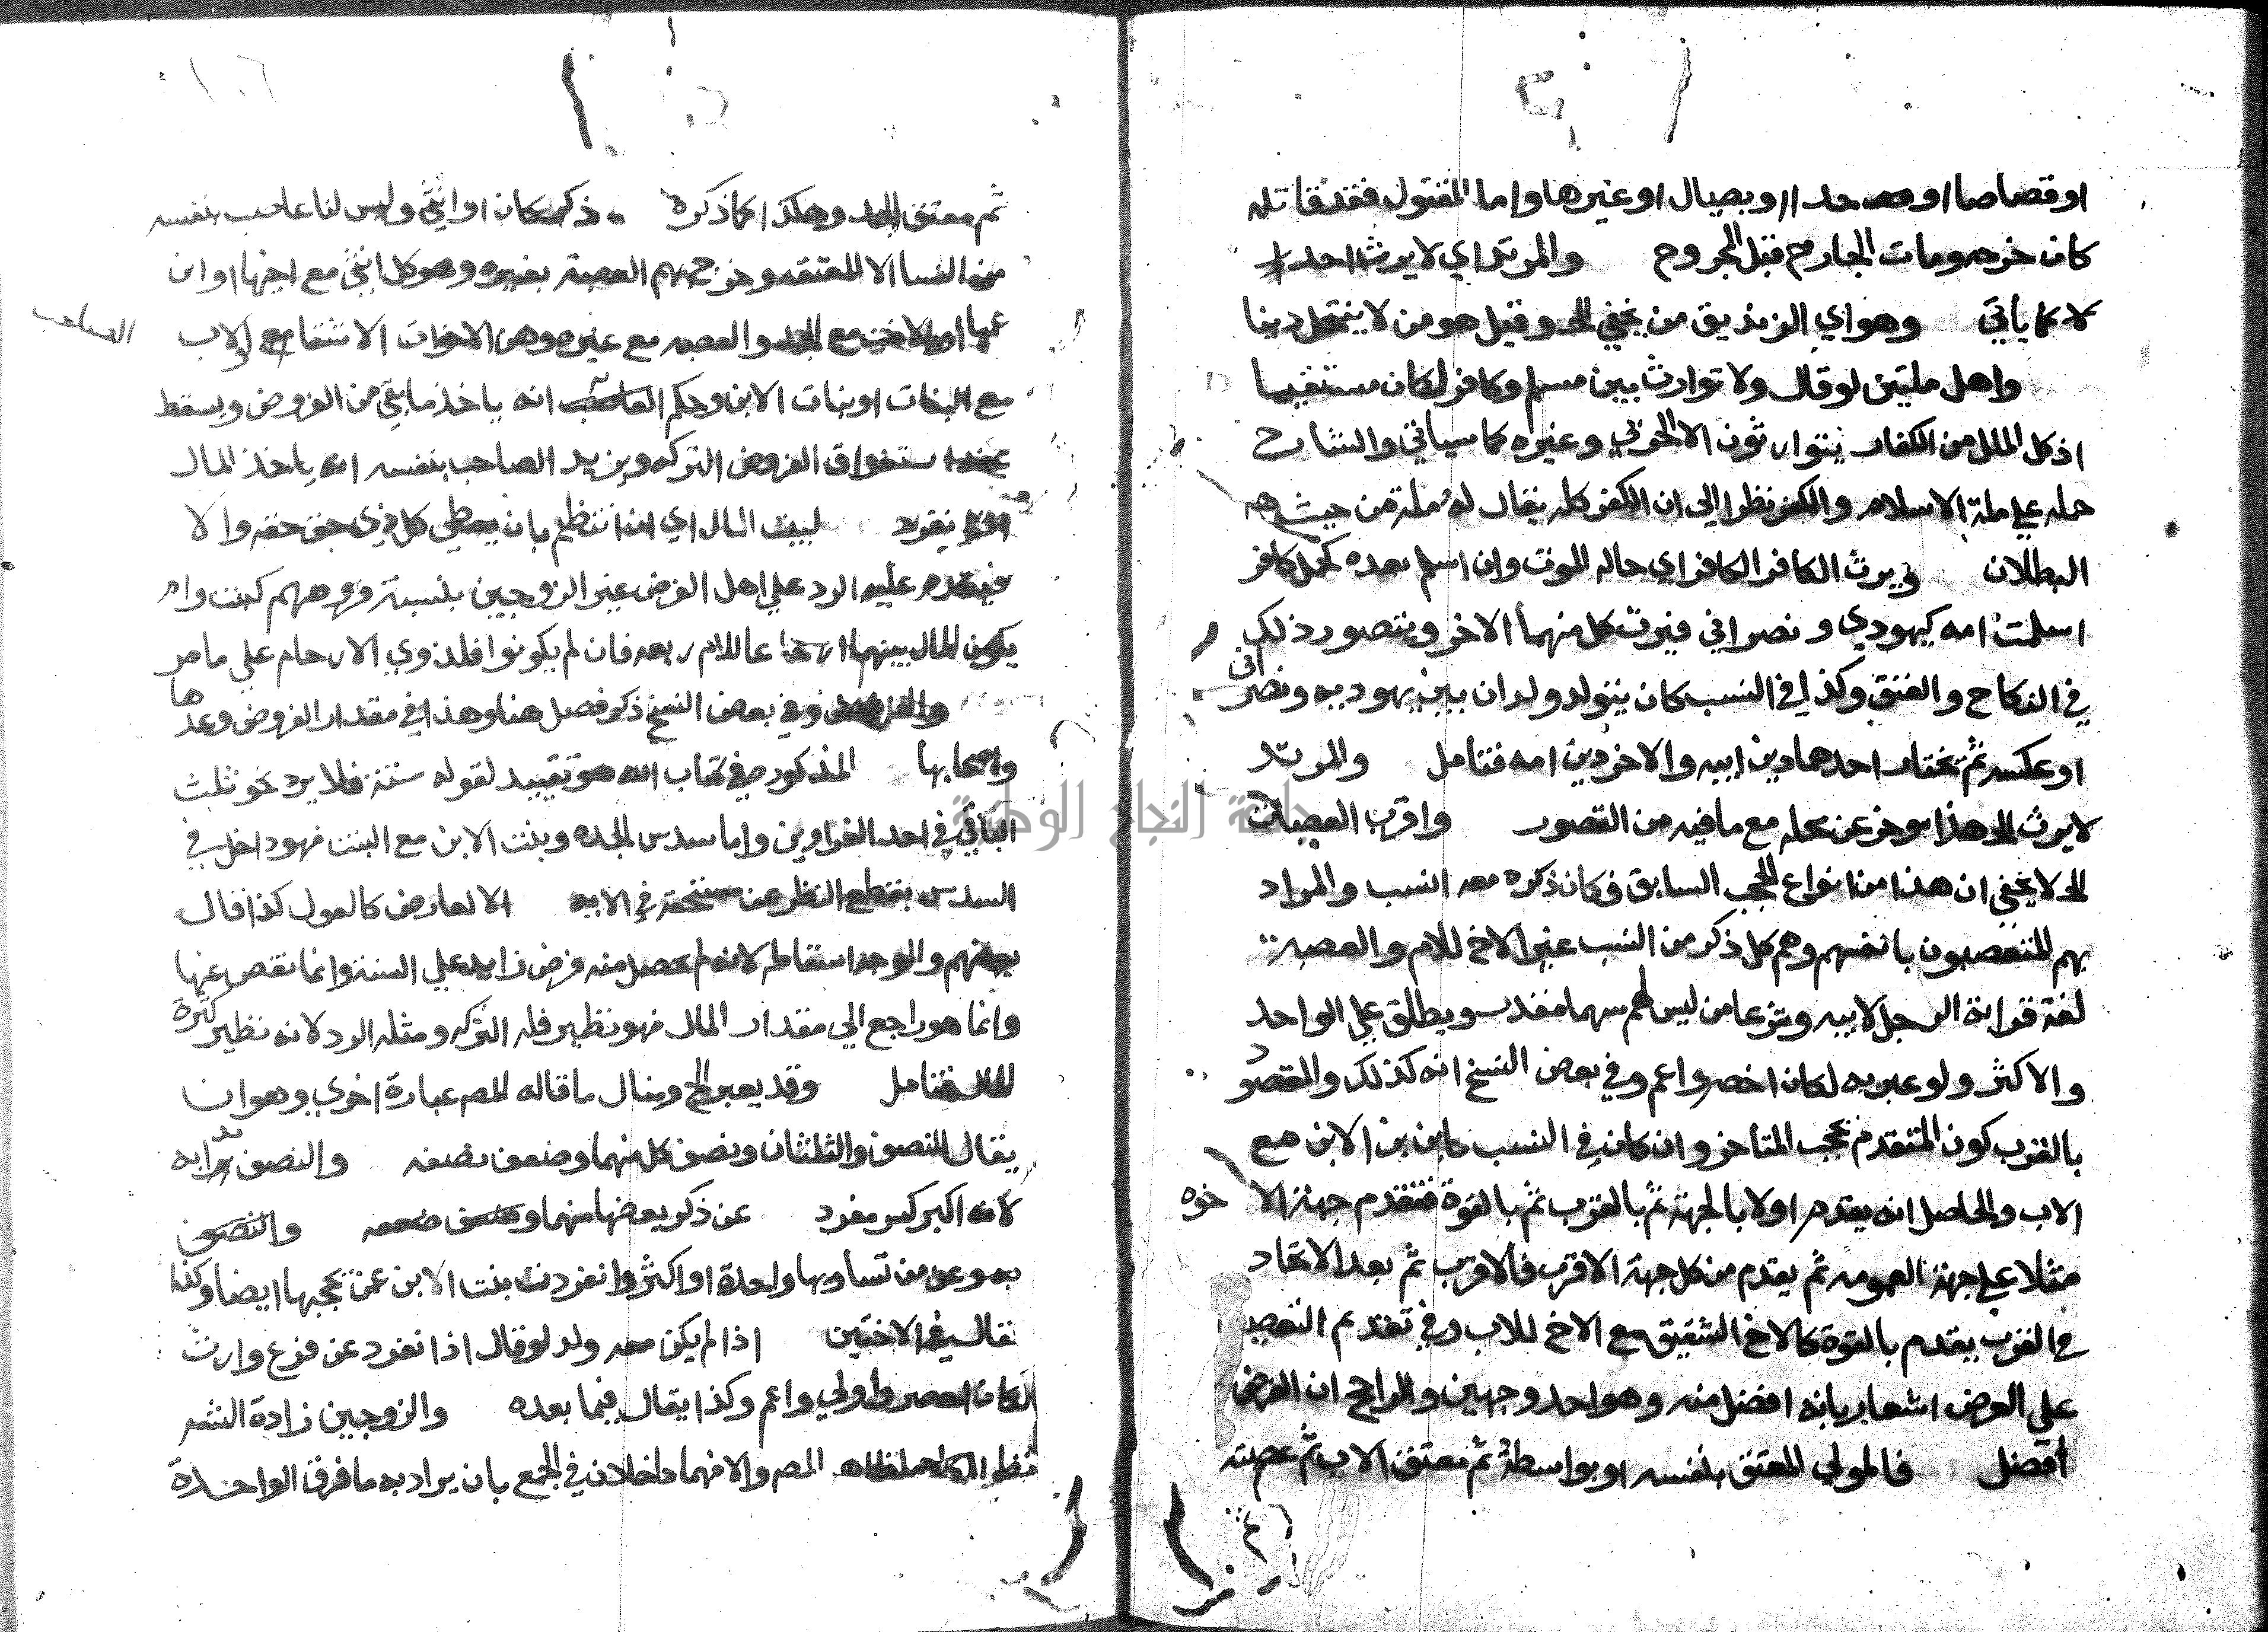 اوقصاصا او حدا او بصيال او غيرها واما المقتول فقد قاتله
كان خرجه ومات الجارح قبل المجروح والمرتد اي لا يرث احدا
لا كما ياتي وهو اي الزنديق من يخفي الخ وقيل هو من لا ينتحل دينا
واهل ملتين لو قال ولا توارث بين مسلم وكافر لكان مستقيما
اذ كل الملل من الكفار يتوارثون الا الحربي وغيره كما سياتي والشارح
حمله علي ملة الاسلام والكفر نظرا الي ان الكفر كله يقال له ملة من حيث
البطلان ويرث الكافر الكافر اي حالة الموت وان اسلم بعده كحمل كافر
اسلمت امه كيهودي ونصراني فيرث كل منهما الاخر ويتصور ذلك
في النكاح والعتق وكذا في النسب كان يتولد ولدان بين يهوديه ونصراني
او عكسه ثم يختار احدهما دين ابيه والاخر دين امه فتامل والمرتد
لا يرث الخ هذا موخر عن محله مع ما فيه من القصور واقرب العصبات
الخ لا يخفي ان هذا من انواع الحجب السابق فكان ذكره معه انسب والمراد
بهم المتعصبون بانفسهم وهم كل ذكر من النسب غير الاخ للام والعصبة
لغة قرابة الرجل لابيه وشرعا من ليس لهم سهما مقدر ويطلق علي الواحد
والاكثر ولو عبر به لكان اخصر واعم وفي بعض النسخ انه كذلك والمقصود
بالقرب كون المتقدم يحجب المتاخر وان كان في النسب كابن بن الابن مع
الاب والحاصل انه يقدم اولا بالجهة ثم بالقرب ثم بالقوة فتقدم جهة الاخوه
مثلا علي جهة العمومه ثم يقدم من كل جهة الاقرب فالاقرب ثم بعد الاتحاد
في القرب يقدم بالقوة كالاخ الشقيق مع الاخ للاب وفي تقديم التعصيب
علي الفرض اشعار بانه افضل منه وهو احد وجهين والراجح ان الفرض
افضل فالمولي المعتق بنفسه او بواسطة ثم معتق الاب ثم عصبته
ثم معتق الجد وهكذا كما ذكره ذكرا كان او انثي وليس لنا عاصب بنفسه
من النسا الا المعتقه وخرج بهم العصبة بغيره وهو كل انثي مع اخيها او ابن
عمها او الاخت مع الجد والعصبه مع غيره وهن الاخوات الاشقا او لاب
مع البنات او بنات الابن وحكم العاصب انه ياخذ ما بقي من الفروض ويسقط
عند استغراق الفروض التركه ويزيد الصاحب بنفسه انه ياخذ المال
اذا انفرد لبيت المال اي ان انتظم بان يعطي كل ذي حق حقه والا
فيقدم عليه الرد علي اهل الفرض غير الزوجين بنسبة فروضهم كبنت وام
يكون المال بينهما ارباعا للام ربعه فان لم يكونوا فلذوي الارحام علي ما مر
والفروض وفي بعض النسخ ذكر فصل هنا وهذا في مقدار الفروض وعدها
واصحابها المذكورة في كتاب الله هو تقييد لقوله ستة فلا يرد نحو ثلث
الباقي في احد الغراوين واما سدس الجده وبنت الابن مع البنت فهو داخل في
السدس بقطع النظر عن مستحقه في الايه الا لعارض كالعول كذا قال
بعضهم والوجه اسقاطه لانه لم يحصل منه فرض زايد علي الستة وانما نقص عنها
وانما هو راجع الي مقدار المال فهو نظير قله التركه ومثله الرد لانه نظير كثرة
المال فتامل وقد يعبر الخ ويقال ما قاله المص عبارة اخري وهو ان
يقال النصف والثلثان ونصف كل منهما ونصف نصفه والنصف بدا به
لانه اكبر كسر مفرد عن ذكر بعضها منهما وضعف ضعفه والنصف
به وعن من تساويها واحدة او اكثر وانفردت بنت الابن عمن يحجبها ايضا وكذا
يقال في الاختين اذا لم يكن معه ولد لو قال اذا انفرد عن فرع وارث
لكان اخصر واولي واعم وكذا يقال فيما بعده والزوجين زادة الشر
نظرا لكلام المص والا فهما داخلان في الجمع بان يراد به ما فوق الواحدة